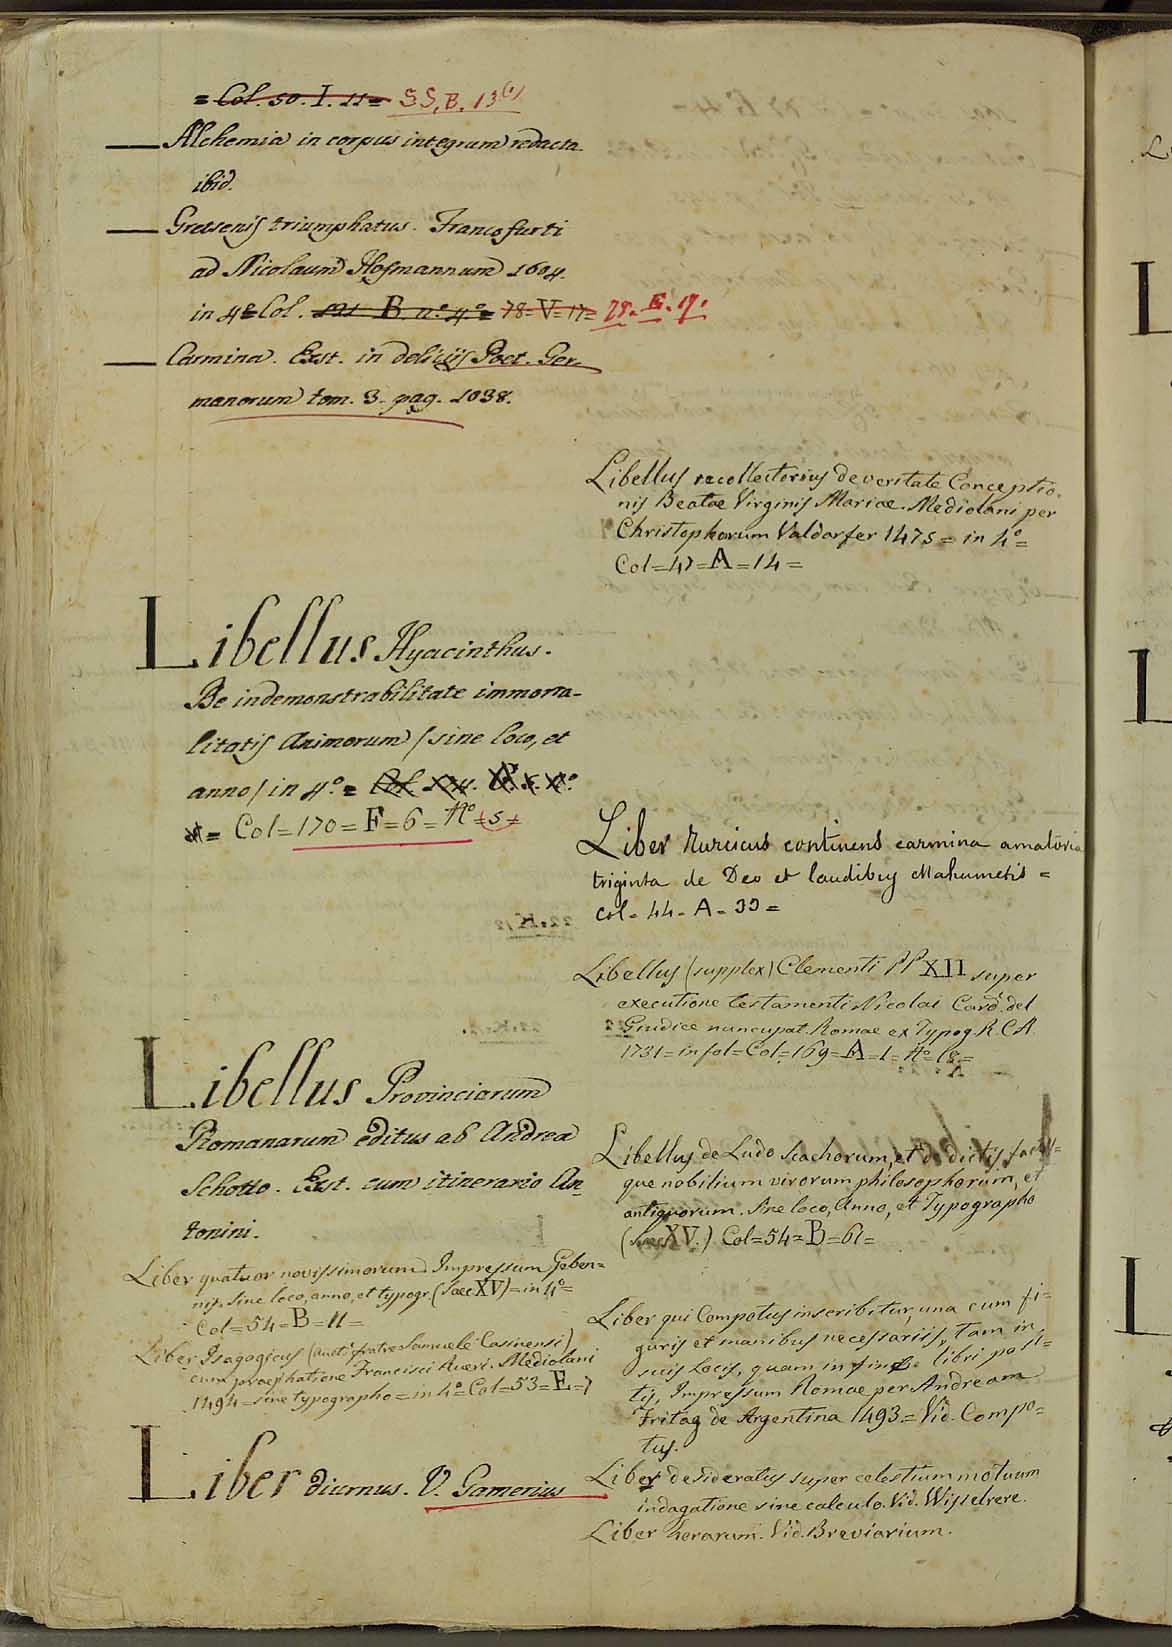 = Col. 50. I. 11 = SS. B. 13
Alchemia in corpus integrum redacta.
ibid.
Gretserus triumphatus. Francofurti
ad Nicolaum Hofmannum 1604.
in 4º Col. B. nº 4º = 78=V=17= 78. E. 17.
Carmina. Ext. in delicijs Poet. Ger-
manorum tom. 3. pag. 1038.
Libellus Hyacinthus.
De indemonstrabilitate immorta-
litatis Animorum /sine loco, et
anno/ in 4º. =
= Col=170=F=6=Nº=5=
Libellus Provinciarum
Romanarum editus ab Andrea
Schotto. Ext. cum itinerario An-
tonini.
Liber quatuor novissimorum. Impressum Geben=
nis. sine loco, anno, et typogr. (Saec XV)=in 4º=
Col=54=B=11=
Liber Isagogicus (Auct. fratre Samuele Casinensi)
cum praephatione Francisci Rueri. Mediolani
1494=sine typographo=in 4º=Col=53=E=7
Liber diurnus. V. Gamerius
Libellus recollectorius de veritate Conceptio-
nis Beatae Virginis Mariae. Mediolani per
Christophorum Valdarfer 1475=in 4º=
Col=47=A=14=
Liber turcicus continens carmina amatoria
triginta de Deo et laudibus Mahumetis =
Col=44=A=33=
Libellus (supplex) Clementi PP XII super
executione testamenti Nicolai Card. del
Giudice nuncupat. Romae ex Typog. R. C. A.
1731=in fol=Col=169=A=1=Nº 18=
Libellus de Ludo Scachorum, et de dictis factis=
que nobilium virorum philosophorum, et
antiquorum. Sine loco, Anno, et Typographo
(Saec XV.) Col=54=B=61=
Liber qui Compotus inscribitur, una cum fi=
guris et manibus necessariis, tam in
suis Locis, quam in fine libri posi=
tis, Impressum Romae per Andream
Fritag de Argentina 1493.=Vid. Compo=
tus.
Liber desideratus super celestium motuum
indagatione sine calculo. Vid. Wisselrere.
Liber horarum. Vid. Breviarium.